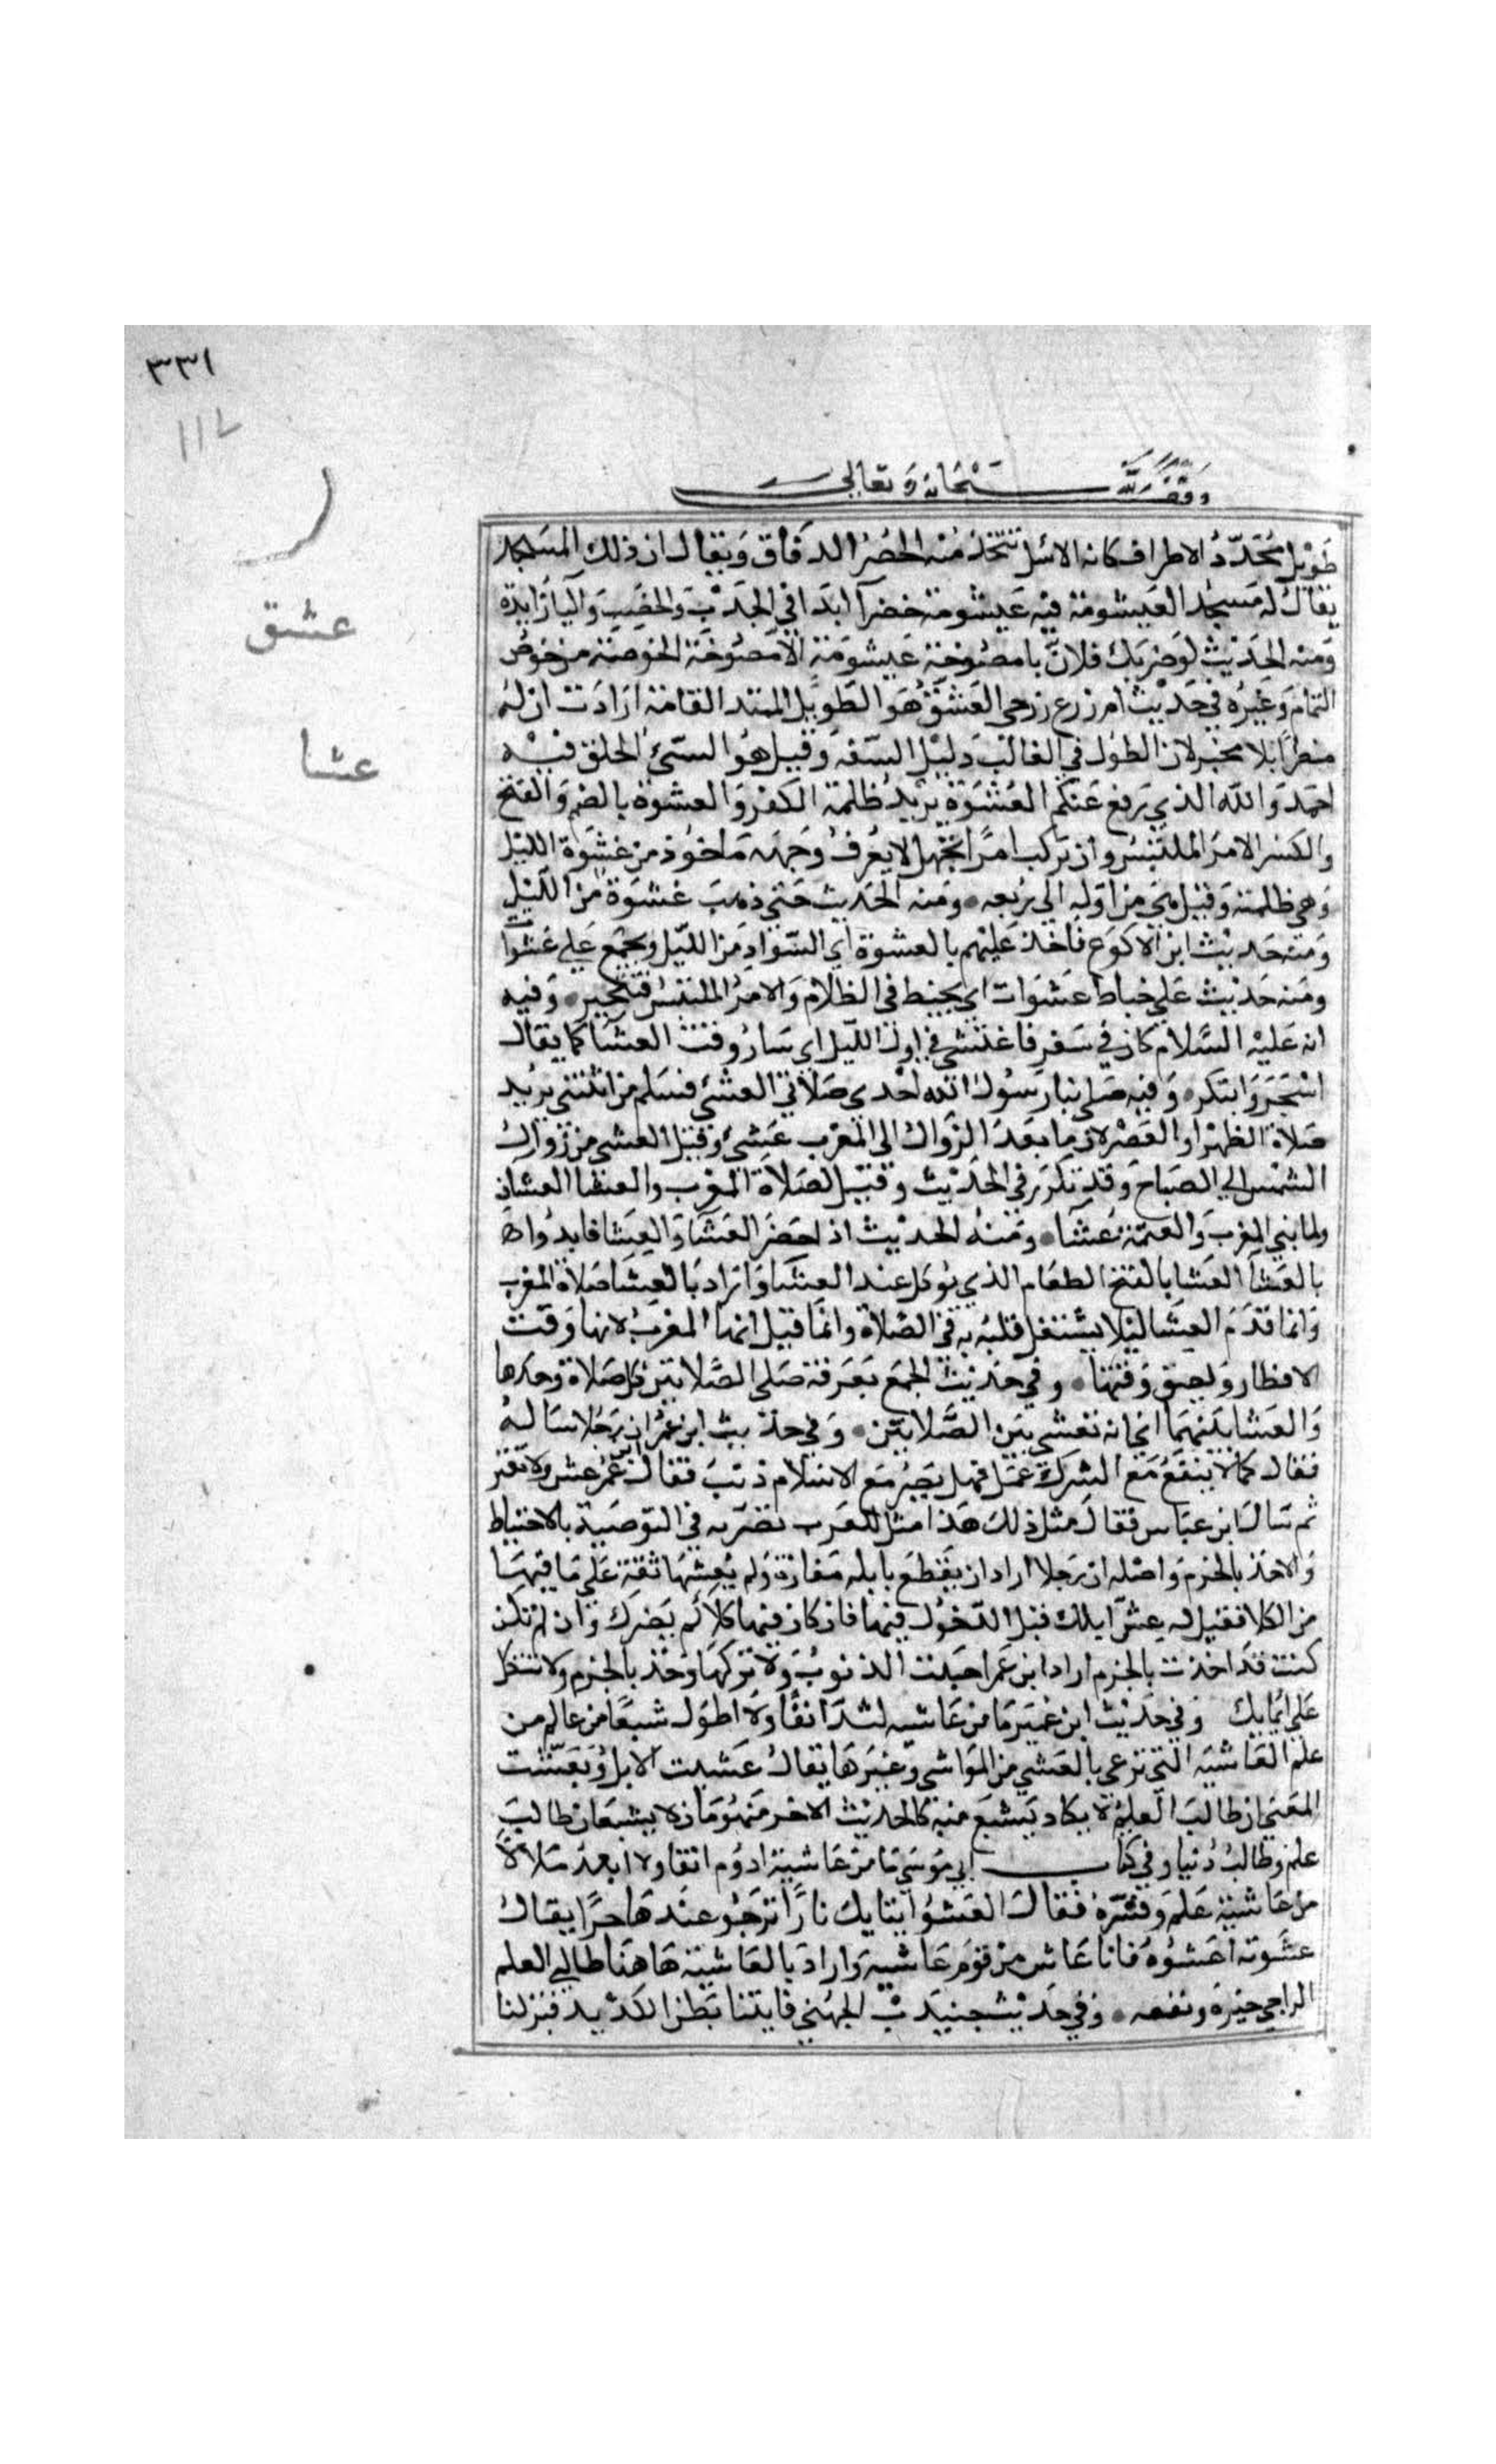 ٣٣١
وقف لله سبحانه وتعالى
عشق
عشا
طويل محدد الاطراف كانه الاسل تتخذ منه الحصر الدقاق ويقال ان ذلك المسجد
يقال له مسجد العيشومة فيه عيشومة خضرآ ابدا في الجدب والخصب واليا زايدة
ومنه الحديث لو ضربك فلان بامصوخة عيشومة الامصوخة الخوصة من خوص
الثمام وغيره في حديث ام زرع زوجي العشنق هو الطويل الممتد القامة ارادت ان له
منظرا بلا مخبر لان الطول في الغالب دليل السفه وقيل هو السيئ الخلق فيه
احمدوا الله الذي رفع عنكم العشوة يريد ظلمة الكفر والعشوة بالضم والفتح
والكسر الامر الملتبس وان تركب امرا بجهل لا يعرف وجهه ماخوذ من عشوة الليل
وهي ظلمته وقيل هي من اوله الى ربعه ومنه الحديث حتى ذهب عشوة من الليل
ومنه حديث ابن الاكوع فاخذ عليهم بالعشوة اي السواد من الليل ويجمع على عشوات
ومنه حديث علي خباط عشوات اي يخبط في الظلام والامر الملتبس فتحير وفيه
انه عليه السلام كان في سفر فاعتشى في اول الليل اي سار وقت العشآ كما يقال
استحر وابتكر وفيه صلى بنا رسول الله احدى صلاتي العشي فسلم من اثنتين يريد
صلاة الظهر او العصر لان ما بعد الزوال الى المغرب عشي وقيل العشي من زوال
الشمس الى الصباح وقد تكرر في الحديث وقيل لصلاة المغرب والعشا العشان
ولما بين المغرب والعتمة عشآ ومنه الحديث اذا حضر العشآ والعشا فابدوا
بالعشآ العشا بالفتح الطعام الذي يوكل عند العشآ واراد بالعشا صلاة المغرب
وانما قدم العشا ليلا يشتغل قلبه به في الصلاة وانما قيل انها المغرب لانها وقت
الافطار ولضيق وقتها وفي حديث الجمع بعرفة صلى الصلاتين كل صلاة وحدها
والعشا بينهما اي انه تعشى بين الصلاتين وفي حديث ابن عمر ان رجلا ساله
فقال كما لا ينفع مع الشرك عمل فهل يضر مع الاسلام ذنب فقال ابن عمر عش ولا تغتر
ثم سال ابن عباس فقال مثل ذلك هذا مثل للعرب تضربه في التوصية بالاحتياط
والاخذ بالحزم واصله ان رجلا اراد ان يقطع بابله مفازة ولم يعشها ثقة على ما فيها
من الكلا فقيل له عش ابلك قبل الدخول فيها فان كان فيها كلا لم يضرك وان لم تكن
كنت قد اخذت بالحزم اراد ابن عمر اجتنب الذنوب ولا تركبها وخذ بالحزم ولا تتكل
على ايمانك وفي حديث ابن عمير ما من عاشيه اشد انقا ولا اطول شبعا من عالم من
علم العاشية التي ترعى بالعشي من المواشي وغيرها يقال عشيت الابل وتعشت
المعنى ان طالب العلم لا يكاد يشبع منه كالحديث الاخر منهومان لا يشبعان طالب
علم وطالب دنيا وفي كتاب ابي موسى ما من عاشية ادوم انقا ولا ابعد ملالا
من عاشية علم وفسره فقال العشو اتيانك نارا ترجو عندها خيرا يقال
عشوته اعشوه فانا عاش من قوم عاشية واراد بالعاشية هاهنا طالبي العلم
الراجي خيره ونفعه وفي حديث جنيدب الجهني فاتينا بطن الكديد فنزلنا